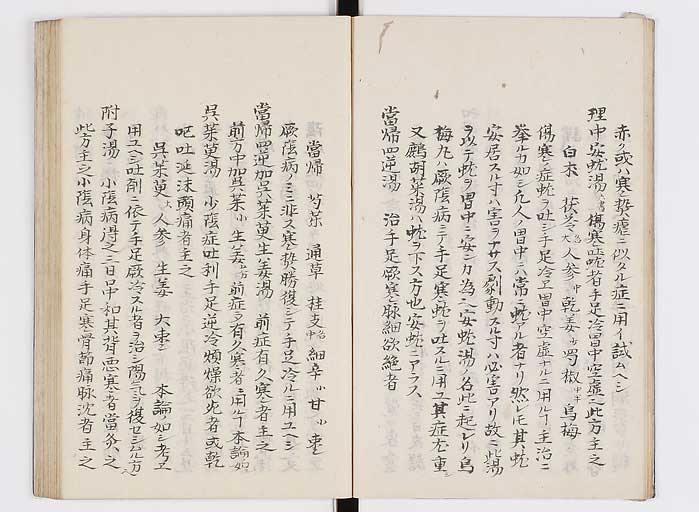 赤ク或ハ寒熱瘧ニ似タル症ニ用イ試ムヘシ
理中安蚘湯 傷寒吐蚘者手足冷胃中空虚也此方主之
白朮 茯苓 人参中 乾姜 蜀椒 烏梅
傷寒症蚘ヲ吐シ手足冷ヱ胃中空虚ナルニ用ル丁主治ニ
挙ルカ如シ凡人ノ胃中ニハ常ニ蚘アル者ナリ然レトモ其蚘
安居スル寸ハ害ヲナサス動スル寸ハ必害アリ故ニ此湯
ヲ以テ蚘ヲ胃中ニ安シカ為ヘ安蚘湯ノ名此ニ起レリ烏
梅丸ハ厥陰病ニテ手足寒蚘ヲ吐スルニ用ユ其症尤重シ
又鷓胡菜湯ハ蚘ヲ下ス方也安蚘ニアラス
當帰四逆湯 治手足厥寒脉細欲絶者
當帰 芍薬 通草 桂支中 細辛小 甘小 棗
厥陰病ノミニ非ス寒熱勝復シテ手足冷ルニ用ユヘシ
當帰四逆加呉茱萸生姜湯 前症有久寒者主之
前方中加呉茱小 生姜 前症ヨリ有久寒者ニ用ル丁本論如
呉茱萸湯 少陰症吐利手足逆冷煩燥欲死者或乾
呕吐涎沫頭痛者主之
呉茱萸大 人参 生姜 大棗 本論如シ考ヱ
用ユヘシ吐剤ニ依テ手足厥冷スル者ヲ治シ陽気ヲ復セシムル方
附子湯 小陰病得之二日口中和其背悪寒者當灸ス
此方主之小陰病身体痛手足寒骨節痛脉沈者主之